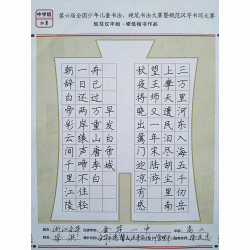 中学组
第六届全国少年儿童书法、硬笔书法大赛暨规范汉字书写大赛
规范汉字组·硬笔楷书作品
三万里河东入海五千仞岳
上摩天遗民泪尽胡尘里南
望王师又一年 陆游
秋夜将晓出篱门迎凉有感
朝辞白帝彩云间千里江陵
一日还两岸猿声啼不住轻
舟已过万重山 唐李白
早发白帝城
浙江金华 金华一中 高二